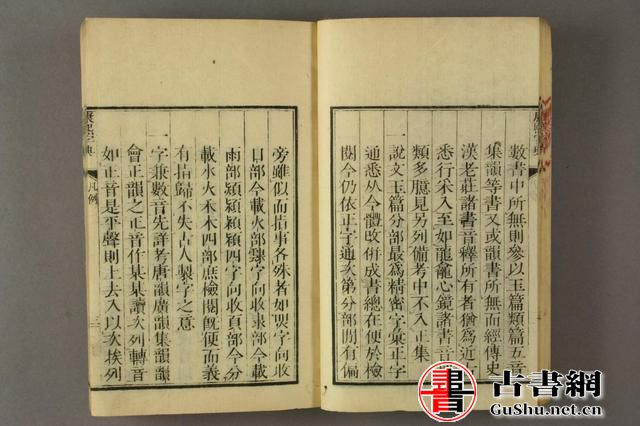 康熙字典
數書中所無則參以玉篇類篇五音
集韻等書又或韻書所無而經傳史
漢老莊諸書音釋所有者猶為近
悉行采入至如龍龕心鏡諸書音
類多臆見另列備考中不入正集
一說文玉篇分部最為精密字彙正字
通悉从今體改倂成書總在便於檢
閱今仍依正字通次第分部閒有偏
旁雖似而指事各殊者如煛字向收
目部今載火部字向收隶部今載
雨部四字向收頁部今分
載水火禾木四部庶檢閱旣便而義
有指歸不失古人製字之意
一字兼數音先詳考唐韻廣韻集韻韻
會正韻之正音作某某讀次列轉音
如正音是平聲則上去入以次挨列
康熙字典 凡例 三
書 古書網
GuShu.net.cn